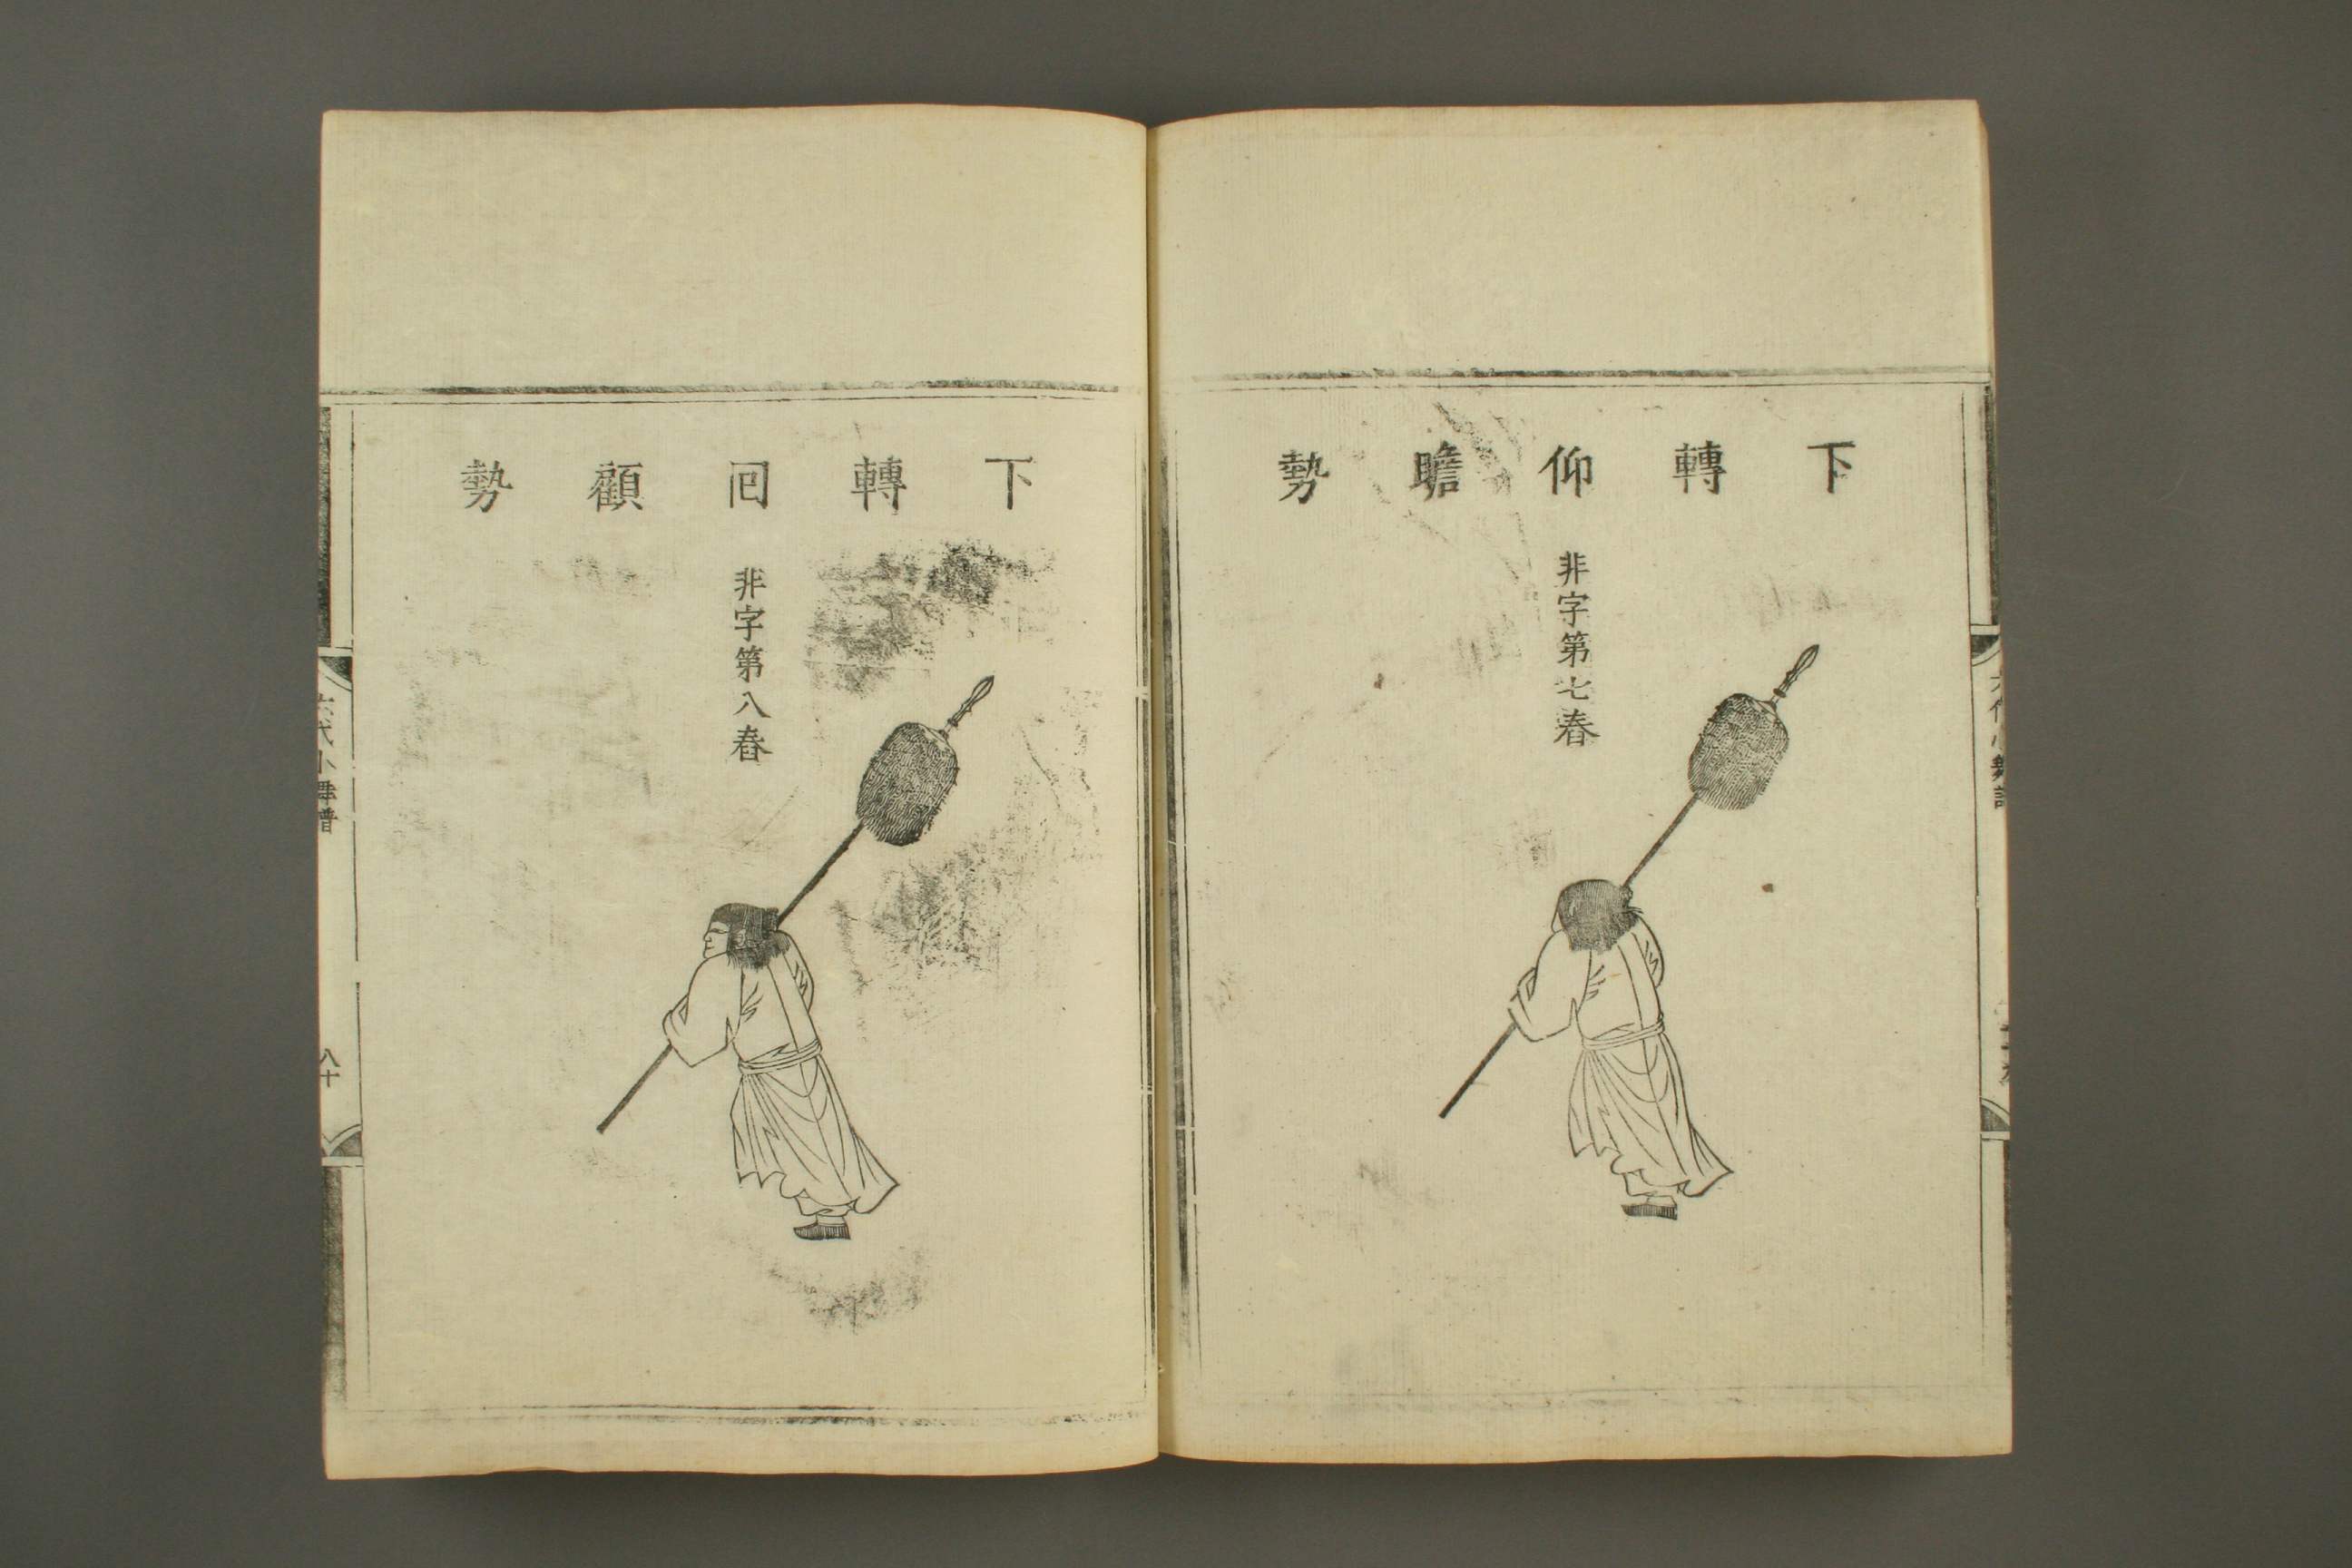 下轉仰瞻勢
非字第七舂
下轉回顧勢
非字第八舂
六代小舞譜
八十